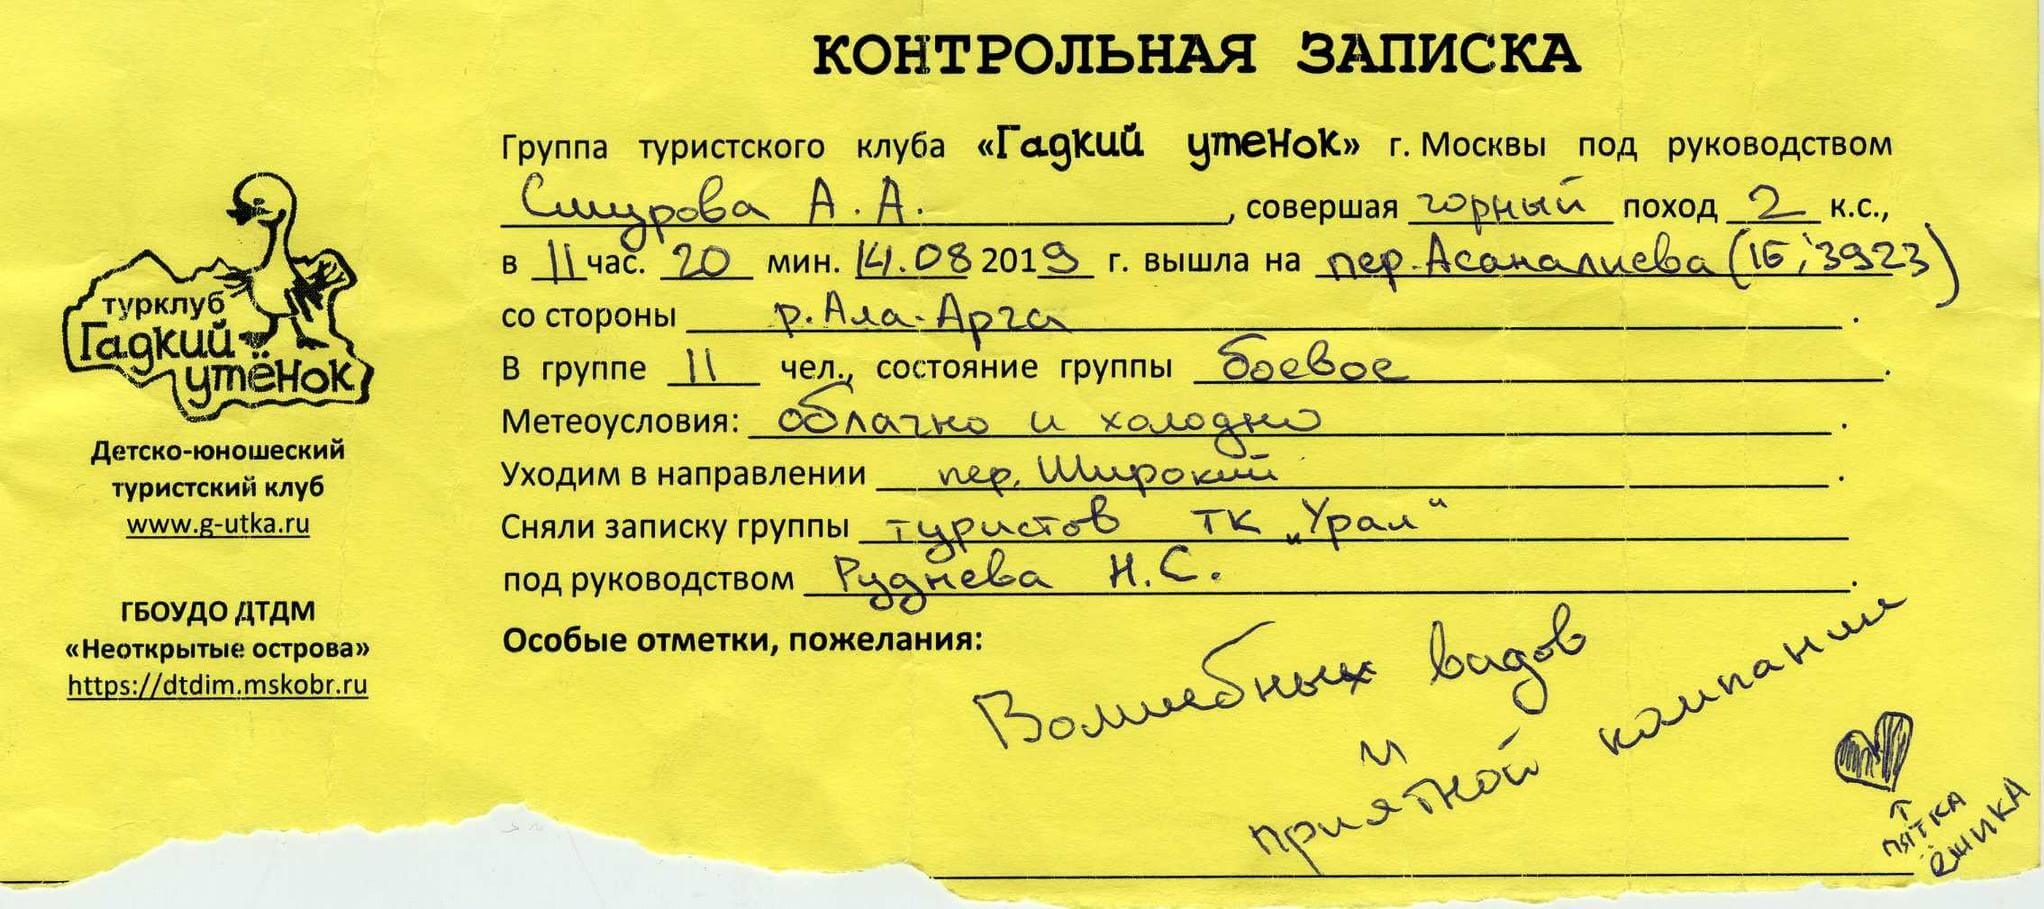 КОНТРОЛЬНАЯ ЗАПИСКА
Группа туристского клуба «Гадкий утенок» г. Москвы под руководством
Смурова А. А., совершая горный поход 2 к.с.,
в 11 час. 20 мин. 14.08 2019 г. вышла на пер. Асаналиева (1Б, 3923)
со стороны р. Ала-Арча.
В группе 11 чел., состояние группы боевое.
Метеоусловия: облачно и холодно.
Уходим в направлении пер. Широкий.
Сняли записку группы туристов ТК „Урал“
под руководством Руднева Н.С.
Особые отметки, пожелания:
Волшебных видов
и
приятной компании
пятка
ёжика
турклуб
Гадкий
утёнок
Детско-юношеский
туристский клуб
www.g-utka.ru
ГБОУДО ДТДМ
«Неоткрытые острова»
https://dtdim.mskobr.ru